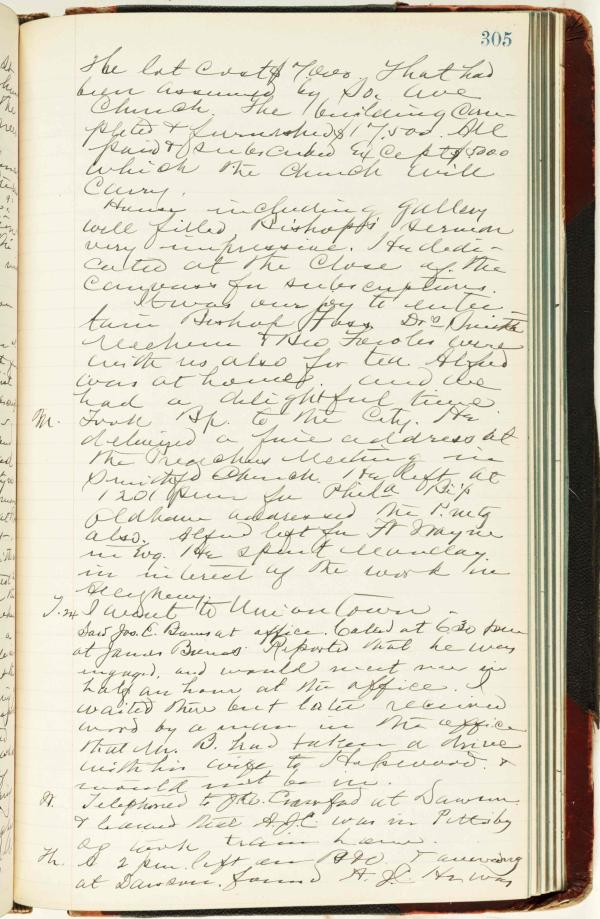 305
The lot cost $7000. That had
been assumed by So. Ave
Church. The building com-
pleted & furnished $17,500. All
paid & subscribed except $5000
which the Church will
carry.
House including gallery
well filled. Bishop's sermon
very impressive. He dedi-
cated at the close of the
canvass for subscriptions.
It was our joy to enter-
tain Bishop Foss. Drs Smith
& Geo
with us also for tea. Alfred
was at home and we
had a delightful time.
M. Took Bp. to the City. He
delivered a fine address at
the Preachers Meeting in
Smithfd Church. He left at
1201 pm for Phila. Bp
Oldham addressed the P. mtg
also. Alfred left for Ft Wayne
in Evg. He spent Monday
in interest of the work in
Allegheny.
T. 24 I went to Uniontown.
Saw Jos. E. Barns at office. Called at 630 pm
at James Barns' Reported that he was
engaged, and would meet me in
half an hour at the office. I
waited there but later received
word by a man in the office
that Mr. B. had taken a drive
with his wife to Hopwood &
would not be in.
W. Telephoned to Crawford at Dawson
& learned that A.J.C. was in Pittsbg
train home.
Th. At 2 pm left on B&O & arriving
at Dawson found A. J. C. He was